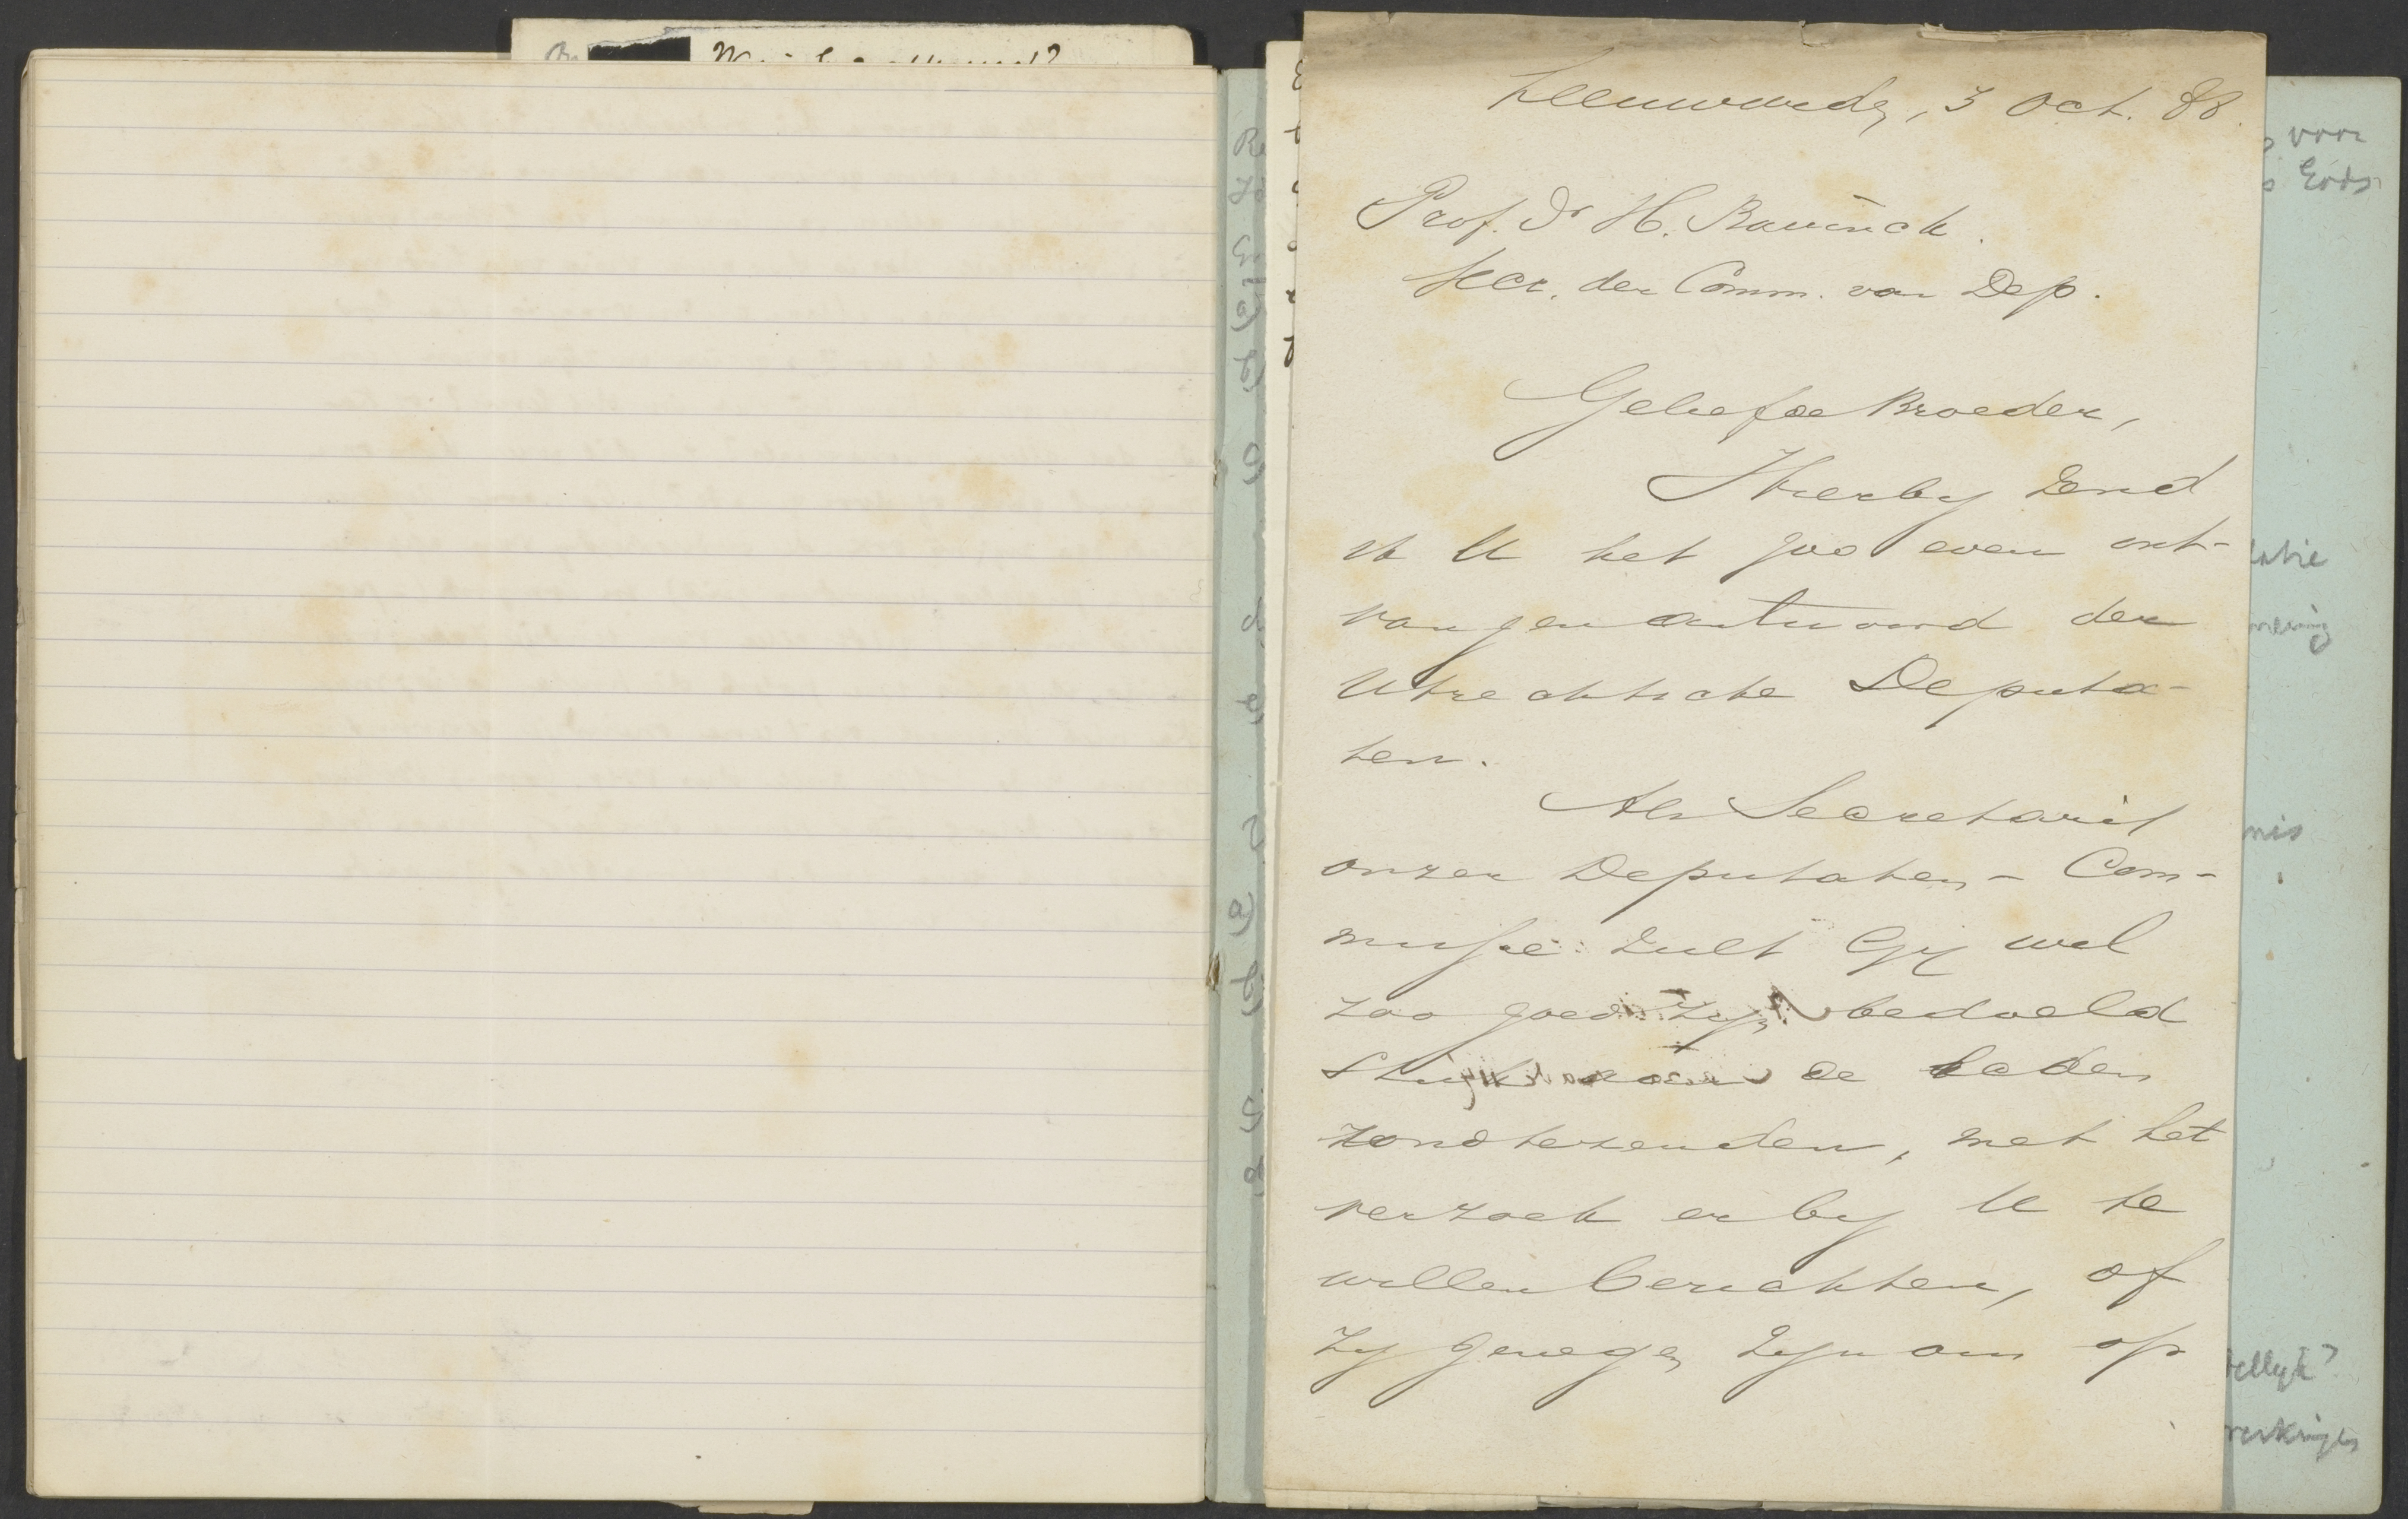 Leeuwarden, 3 Oct. 88.
Prof. Dr H. Bavinck.
Secr. der Comm. van Dep.
Geliefde Broeder,
Hierby zend
ik U het zoo even ont-
vangen antwoord der
Utrechtsche Deputa-
ten.
Als Secretaris
onzer Deputaten-Com-
missie zult Gij wel
zoo goed zijn bedoeld
stuk aan de leden
rond te zenden, met het
verzoek er by U te
willen berichten, of
zy genegen zijn om op
voor
Eods
latie
mering
nis
tellyk?
merkingen